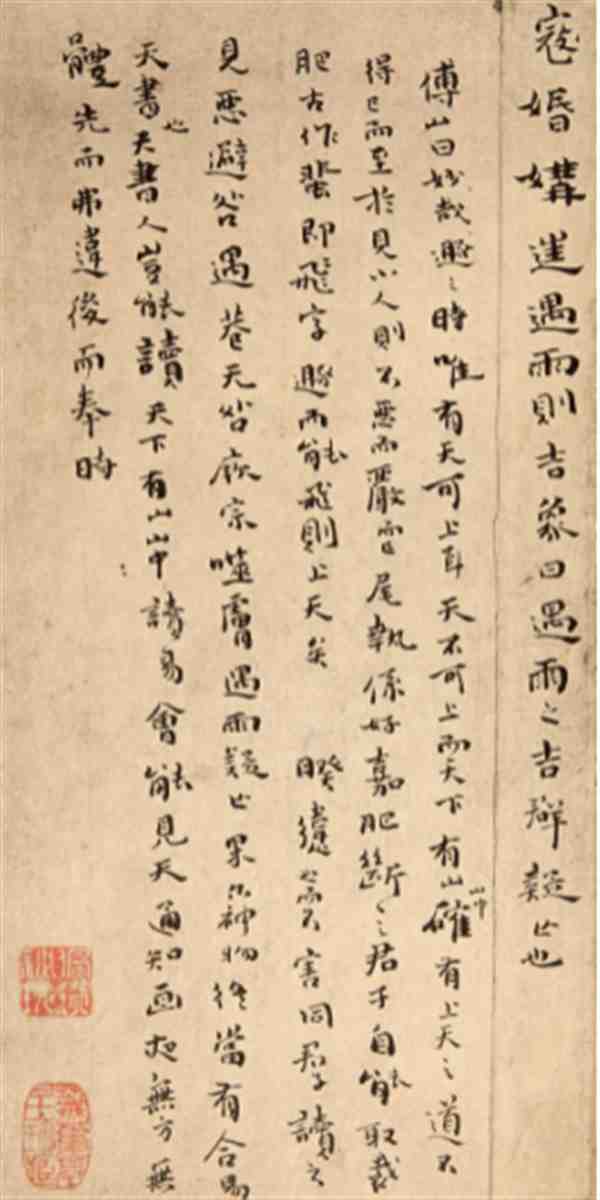 寇婚媾往遇雨則吉象曰遇雨之吉群疑亡也
傅山曰妙哉遯之時唯有天可上耳天不可上而天下有山山中確有上天之道不
得已而至於見小人則不惡而嚴尾執係好嘉肥斷〻之君子自能取裁
肥古作蜚即飛字遯而能飛則上天矣 睽害同君子讀之
見惡避咎遇巷无咎厥宗噬膚遇雨疑亡果神物終當有合易
天書也天書人豈能讀天下有山山中讀易會能見天通知畫夜無方無
體先而弗違後而奉時